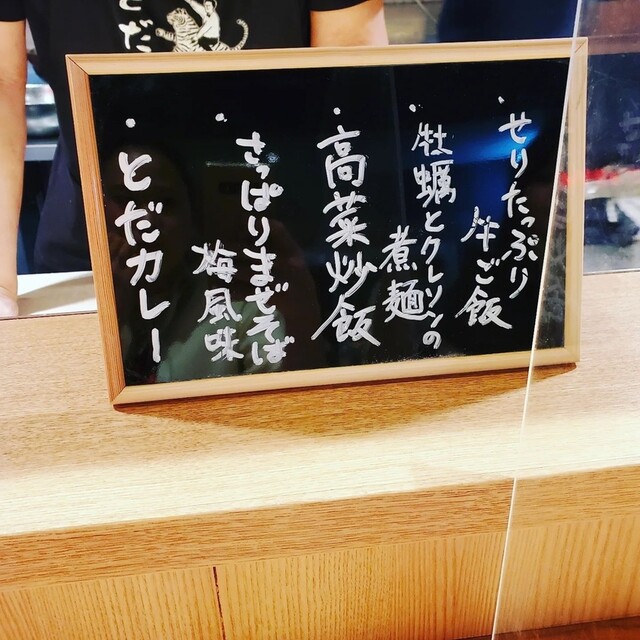 ・せりたっぷり
牛ご飯
・牡蠣とクレソンの
煮麺
・高菜炒飯
・さっぱりまぜそば
梅風味
・とだカレー
とだ